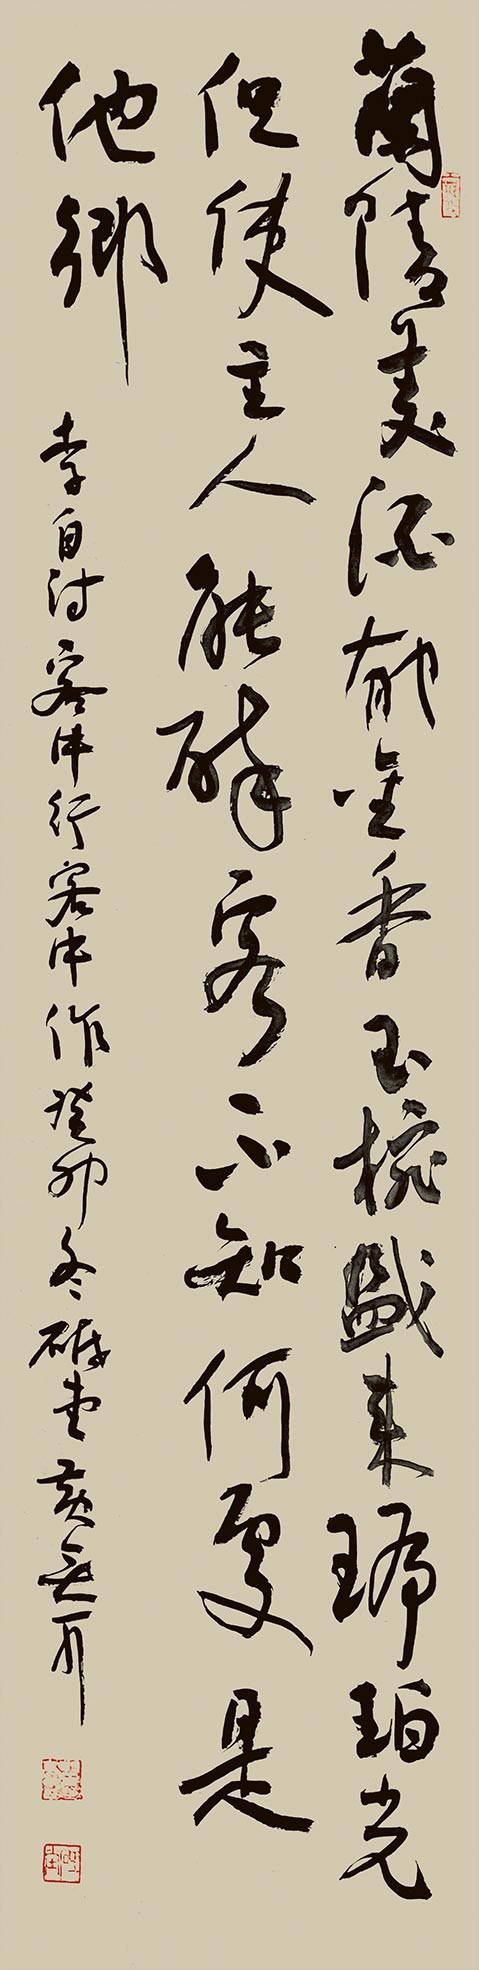 蘭陵美酒郁金香玉椀盛来琥珀光
但使主人能醉客不知何處是
他鄉
李白诗客中行客中作癸卯冬